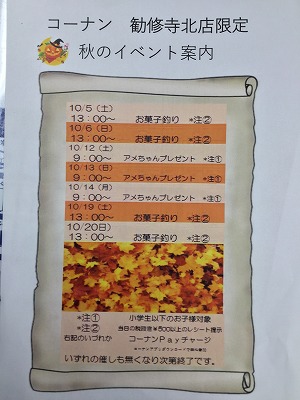 コーナン 勧修寺北店限定
秋のイベント案内
10/5(土)
13:00〜 お菓子釣り *注②
10/6(日)
13:00〜 お菓子釣り *注②
10/12(土)
9:00〜 アメちゃんプレゼント *注①
10/13(日)
9:00〜 アメちゃんプレゼント *注①
10/14(月)
9:00〜 アメちゃんプレゼント *注①
10/19(土)
13:00〜 お菓子釣り *注②
10/20(日)
13:00〜 お菓子釣り *注②
*注① 小学生以下のお子様対象
*注② 当日の税抜¥500以上のレシート提示
右記のいづれか コーナンPayチャージ
いずれの催しも無くなり次第終了です。